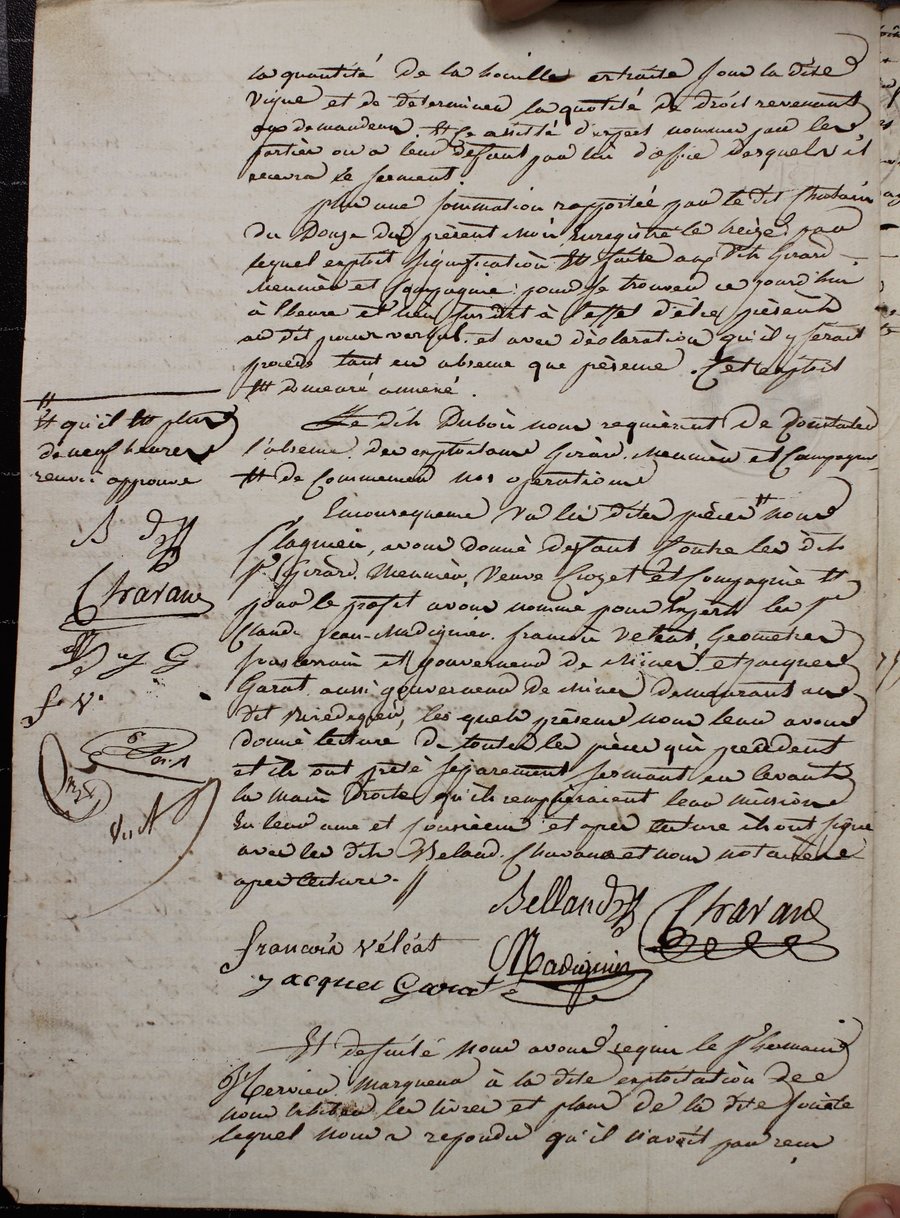 la quantité de la houille extraite sous la dite
vigne et de determiner la quotité de droit revenant
aux demandeur, et se assisté d'expert nommer par les
parties ou a leur defaut par lui d'office desquels il
recevra le serment.
plus une sommation rapportée par le dit
du Douze du présent mois enregistré le treize par
lequel exploit signification est faite aux dits Girard
Meunier et Compagnie pour se trouver ce jourd'hui
à l'heure et lieu susdit à l'effet d'être présent
au dit procès verbal. et avec déclaration qu'il y serait
procédé tant en absence que présence. Cet exploit
est demeuré annexé.
Le dit Dubois nous requièrent de Constater
l'absence des exploitans Girard, Meunier et Compagnie
et de Commencer nos operations
En conséquence vu les dites pièces # nous
avons donné defaut Contre les dits
Sr. Girard, Meunier, Veuve Crozet et Compagnie et
pour le profit avons nommé pour Experts les Sr
Claude Jean-Madignier, francois Veleat, Geomètres
et gouverneur de Mines, et jacques
Garat aussi gouverneur de Mines demeurant au
dit les quels présens nous leur avons
donné lecture de toutes les pièces qui precèdent
et ils ont prêté separement serment en levant
la main droite qu'ils rempliraient leur mission
En leur ame et conscience et apres lecture ils ont signé
avec les dits Beland, Chavane et nous notaire
apres lecture.
# qu'il est plus
de neuf heures
renvoi approuvé
B d
Chavane
J G
f. v.
Belland
Chavane
francois véléat
Madignier
Jacques Garat
Et de suite nous avons requis le Sr Germain
Mervieu marqueur à la dite exploitation de
nous exhiber les livres et plans de la dite societe
lequel nous a repondu qu'il n'avait pas reçu